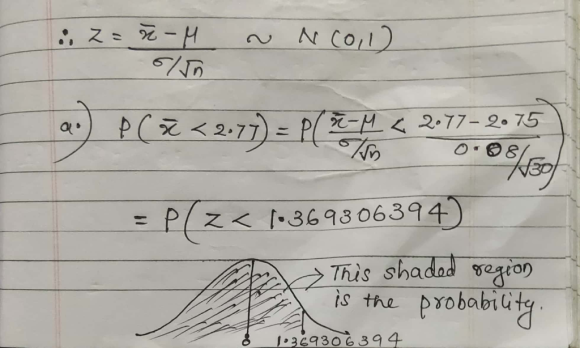 ∴ Z = x̄ - μ / σ/√n ~ N (0,1)
a.) P( x̄ < 2.77) = P( x̄ - μ / σ/√n < 2.77 - 2.75 / 0.08/√30 )
= P( Z < 1.369306394)
This shaded region
is the probability.
0 1.369306394